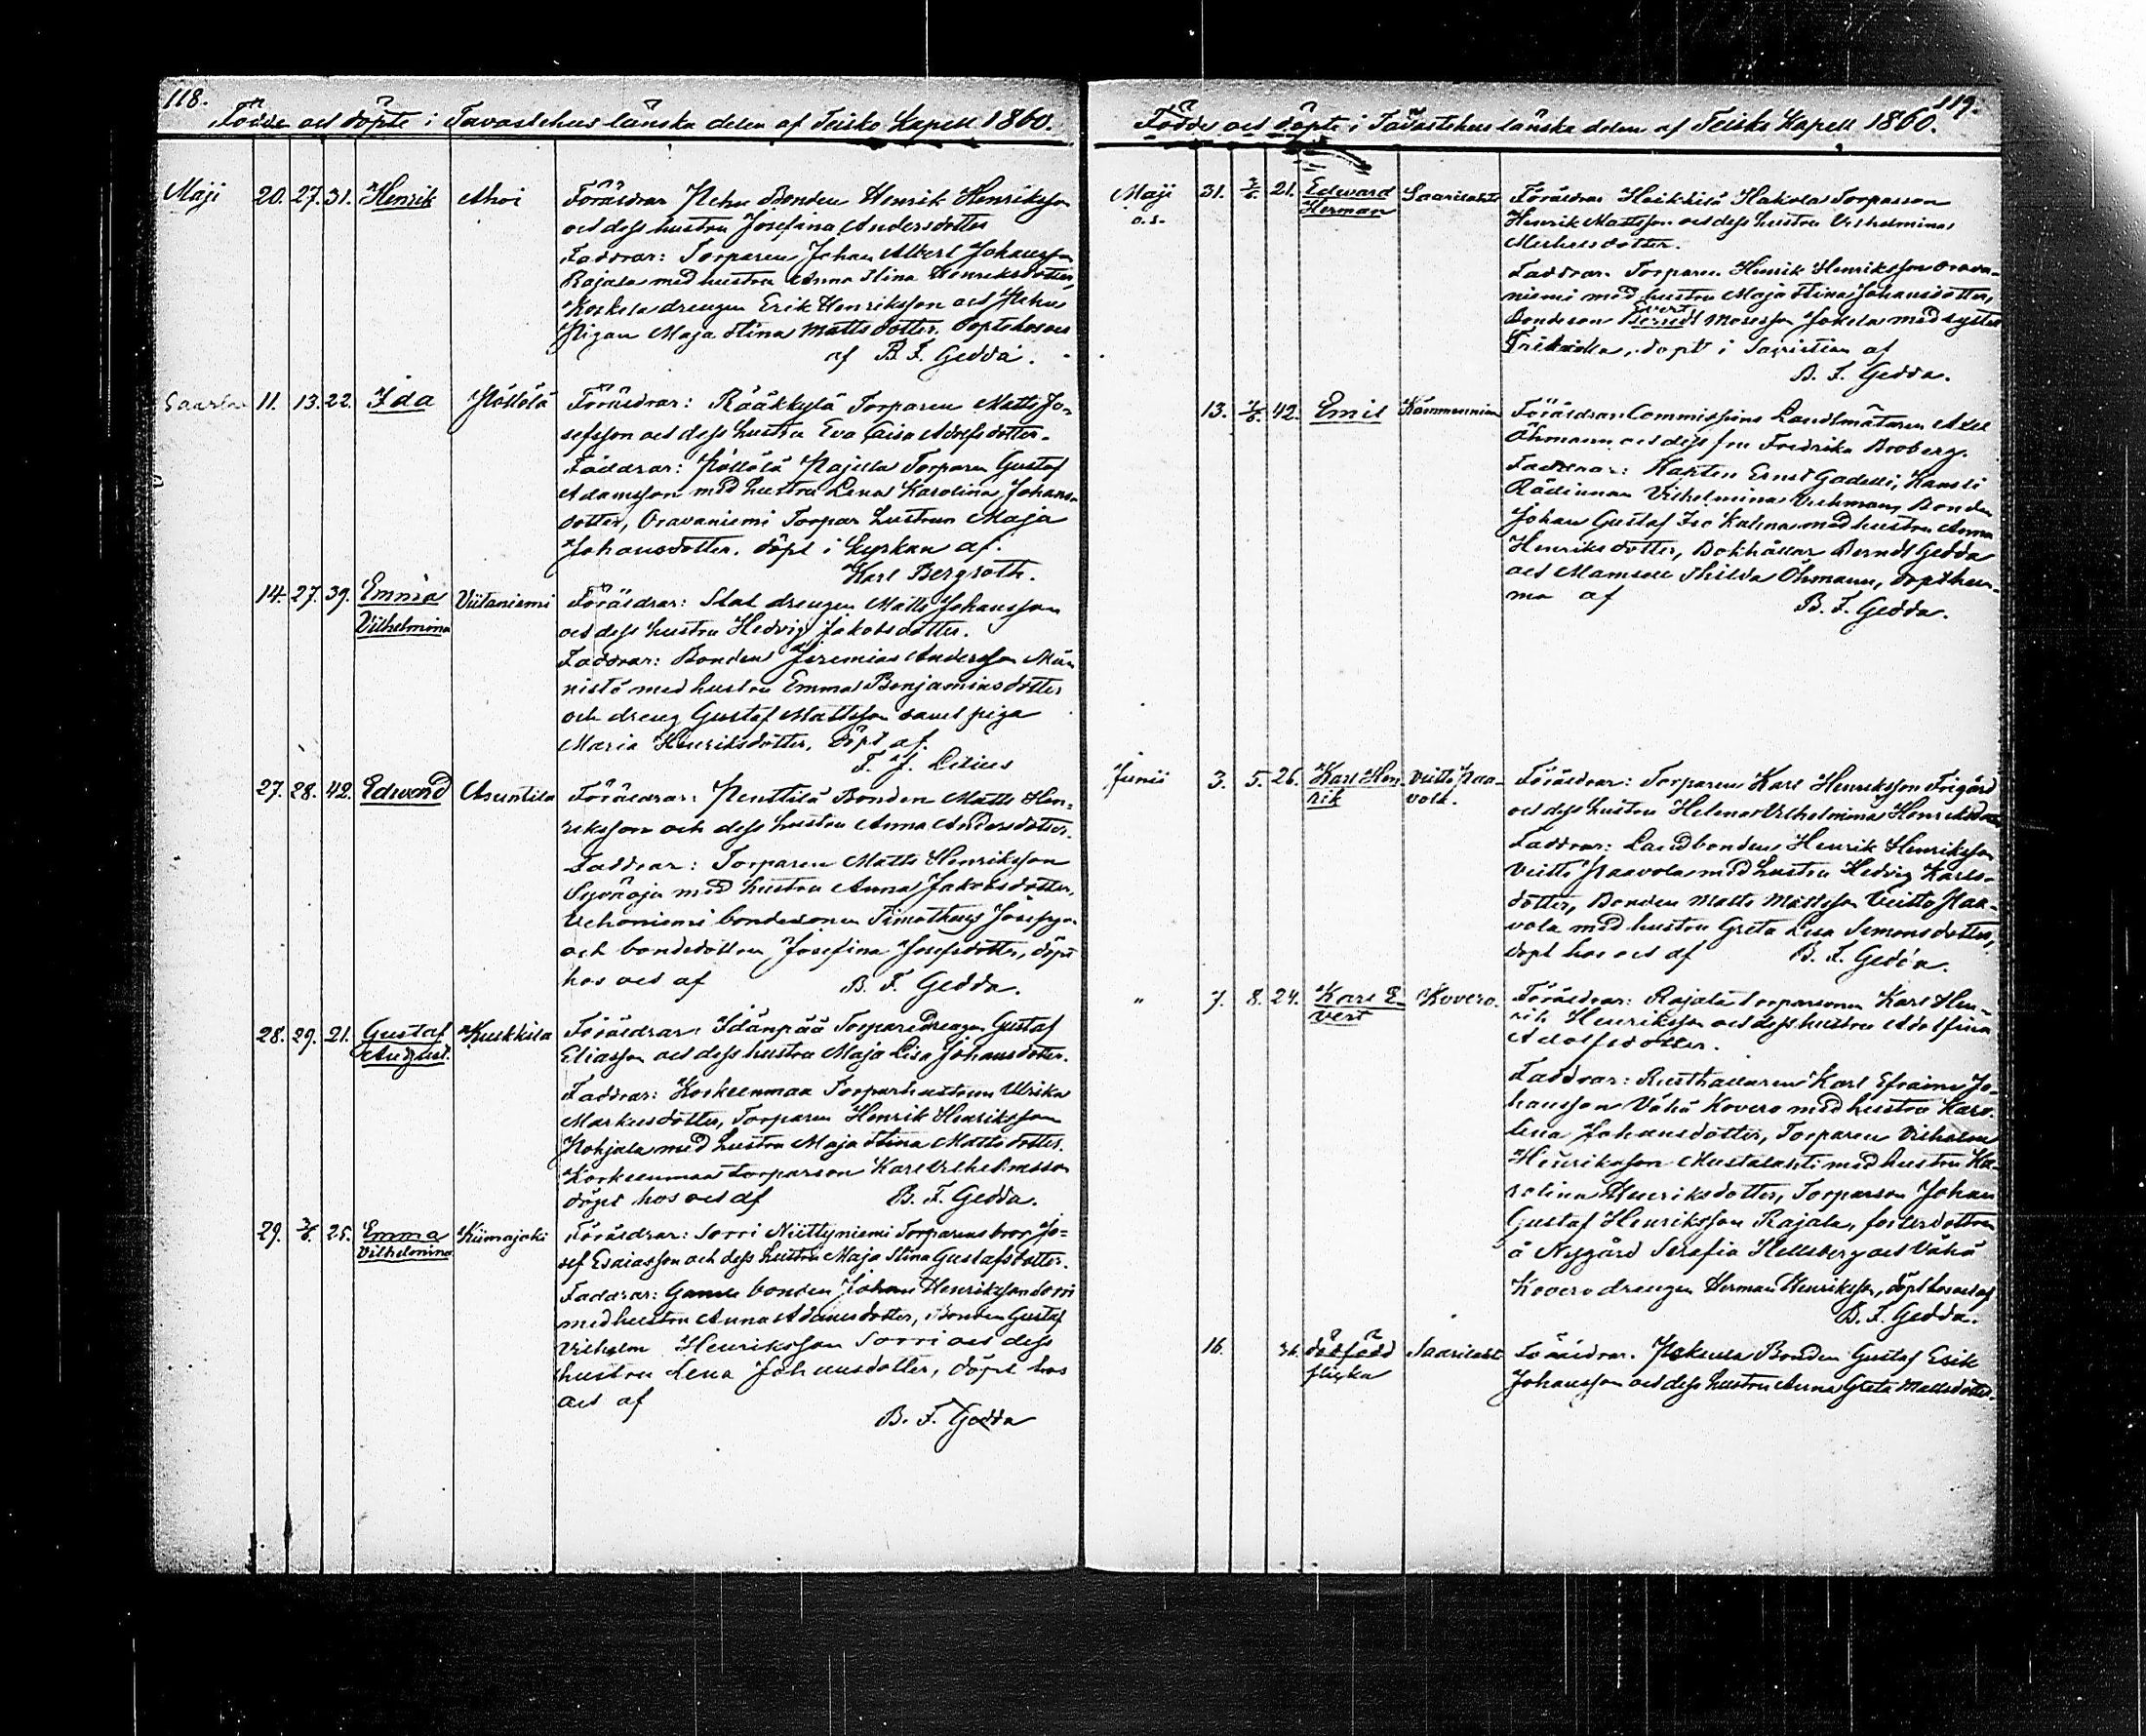 118.
Födde och döpte i Tavastehus länska delen af Teisko Kapell 1860.
Maji 20. 27. 31. Henrik Ahoi Föräldrar Bonden Henrik Henriksson
och dess hustru Josefina Andersdotter
Faddrar: Torparen Johan Albert Johansson
Rajala med hustru Anna Stina Henriksdotter,
Koskela drengen Erik Henriksson och
Pigan Maja Stina Mattsdotter. döpt hos oss
af B. F. Gedda.
11. 13. 22. Ida Pöllölä Föräldrar: Rääkkylä Torparen Matts Jo-
sefsson och dess hustru Eva Caisa Adolfsdotter.
Faddrar: Pöllölä Torparen Gustaf
Adamsson med hustru Lena Karolina Johans-
dotter, Oravaniemi Torpar hustrun Maja
Johansdotter. döpt i Kyrkan af.
Karl Bergroth.
14. 27. 39. Emma Viitaniemi Föräldrar: Stat drengen Matts Johansson
Vilhelmina och dess hustru Hedvig Jakobsdotter.
Faddrar: Bonden Jeremias Andersson Män-
nistö med hustru Emma Benjaminsdotter
och dreng Gustaf Mattsson samt piga
Maria Henriksdotter, döpt af.
F. J. Lilius
27. 28. 42. Edward Asuntila Föräldrar: Penttilä Bonden Matts Hen-
riksson och dess hustru Anna Andersdotter.
Faddrar: Torparen Matts Henriksson
Syväoja med hustru Anna Jakobsdotter,
Uchoniemi bondesonen Timotheus Josefsson
och bondedottren Josefina Josefsdotter, döpt
hos oss af B. F. Gedda.
28. 29. 21. Gustaf Kuskkila Föräldrar: Idänpää Torparedrengen Gustaf
August. Eliasson och dess hustru Maja Lisa Johansdotter.
Faddrar: Korkeenmaa Torparhustrun Ulrika
Markusdotter, Torparen Henrik Henriksson
Pohjala med hustru Maja Stina Mattsdotter.
Korkeenmaa torparson Karl Vilhelmsson
döpt hos oss af B. F. Gedda.
29. 3/6. 25. Emma Kiimajoki Föräldrar: Sorri Niittyniemi Torparens bror Jo-
Vilhelmina sef Esaiasson och dess hustru Maja Stina Gustafsdotter.
Faddrar: Gamle bonden Johan Henriksson Sorri
med hustru Anna Adamsdotter, Bonden Gustaf
Vilhelm Henriksson Sorri och dess
hustru Lena Johansdotter, döpt hos
oss af
B. F. Gedda
119.
Födde och döpte i Tavastehus länska delen af Teisko Kapell 1860.
Maji 31. 3/6. 21. Edward Saarilaht Föräldrar Heikkilä Hakola Torparson
Herman Henrik Mattsson och dess hustru Vilhelmina
Michelsdotter.
Faddrar. Torparen Henrik Henriksson Orava-
niemi med hustru Maja Stina Johansdotter,
Bondeson Mosesson Jokela med syster
Fredrika, döpt i Sacristian af
B. F. Gedda.
13. 42. Emil Kämmenniemi Föräldrar Commissions Landtmätaren Axel
Öhmann och dess fru Fredrika Broberg.
Faddrar: Kapten Ernst Gadelli, Kansli
Rådinnan Vilhelmina Bonden
Johan Gustaf Iso Kalina med hustru Anna
Henriksdotter, Bokhållar Berndt Gedda
och Mamsell Thilda Öhmann, döpt hem-
ma af B. F. Gedda.
Junii 3. 5. 26. Karl Hen- Veitto Paa-
rik vola. Föräldrar: Torparen Karl Henriksson Frigård
och dess hustru Helena Vilhelmina Henriksdotter
Faddrar: Landbonden Henrik Henriksson
Veitto Paavola med hustru Hedvig Karls-
dotter, Bonden Matts Mattsson Veitto Paa-
vola med hustru Greta Lisa Simonsdotter,
döpt hos oss af B. F. Gedda.
" 7. 8. 24. Karl E- Kovero. Föräldrar: Rajala torparsonen Karl Hen-
vert rik Henriksson och dess hustru Adolfina
Adolfsdotter.
Faddrar: Rusthållaren Karl Efraim Jo-
hansson Vähä Kovero med hustru Karo-
lina Johansdotter, Torparen Vilhelm
Henriksson Mustalahti med hustru Ka-
rolina Henriksdotter, Torparson Johan
Gustaf Henriksson Rajala, fosterdottren
å Nygård Serafia Hellsberg och Vähä
Kovero drengen Herman Henriksson, döpt hos oss af
B. F. Gedda.
16. 36. dödfödd Saarilaht Föräldrar. Bonden Gustaf Erik
flicka Johansson och dess hustru Anna Greta Mattsdotter.